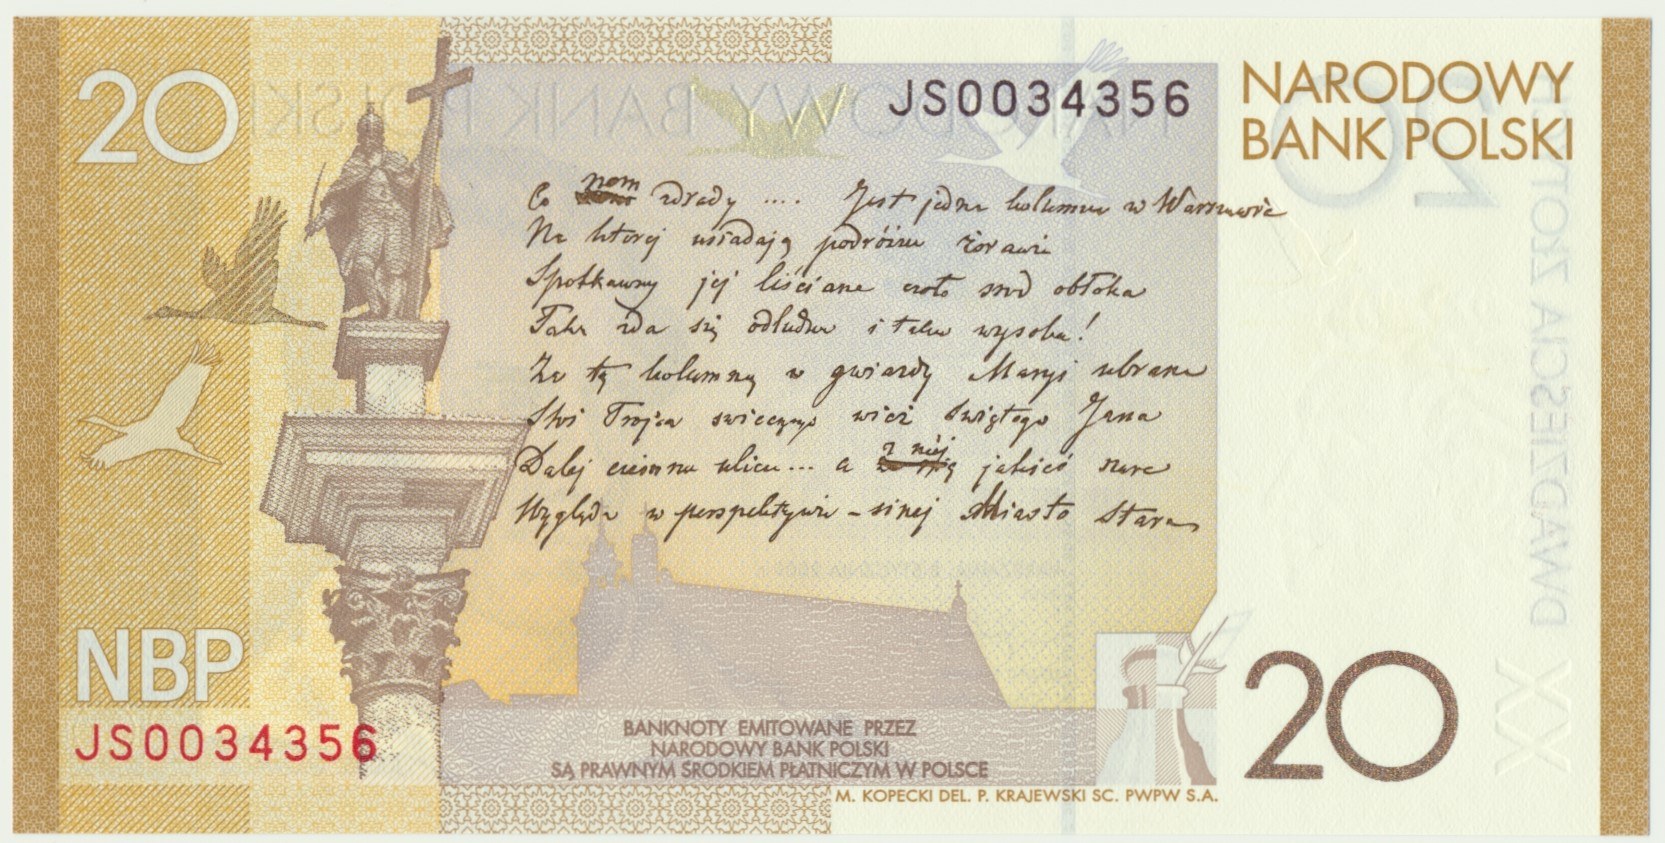 20
JS0034356
NARODOWY
BANK POLSKI
Co nam zdrady .... Jest jedna kolumna w Warszawie
Na ktorej usiadają podróżne żorawie
Spotkawszy jej liściane czoło obłoka
Taka zda się odludna i taka wysoka!
Za tą kolumną w gwiazdy Maryi ubrana
Stoi Trojca wież świętego Jana
Dalej ciemna ulica... a z niej jakieś szare
Wygląda w perspektywie - sinej Miasto Stare
NBP
JS0034356
BANKNOTY EMITOWANE PRZEZ
NARODOWY BANK POLSKI
SĄ PRAWNYM ŚRODKIEM PŁATNICZYM W POLSCE
M. KOPECKI DEL. P. KRAJEWSKI SC. PWPW S.A.
20
XX